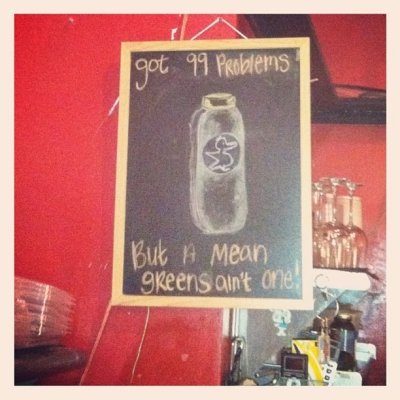 got 99 Problems
But A Mean
greens ain't one!